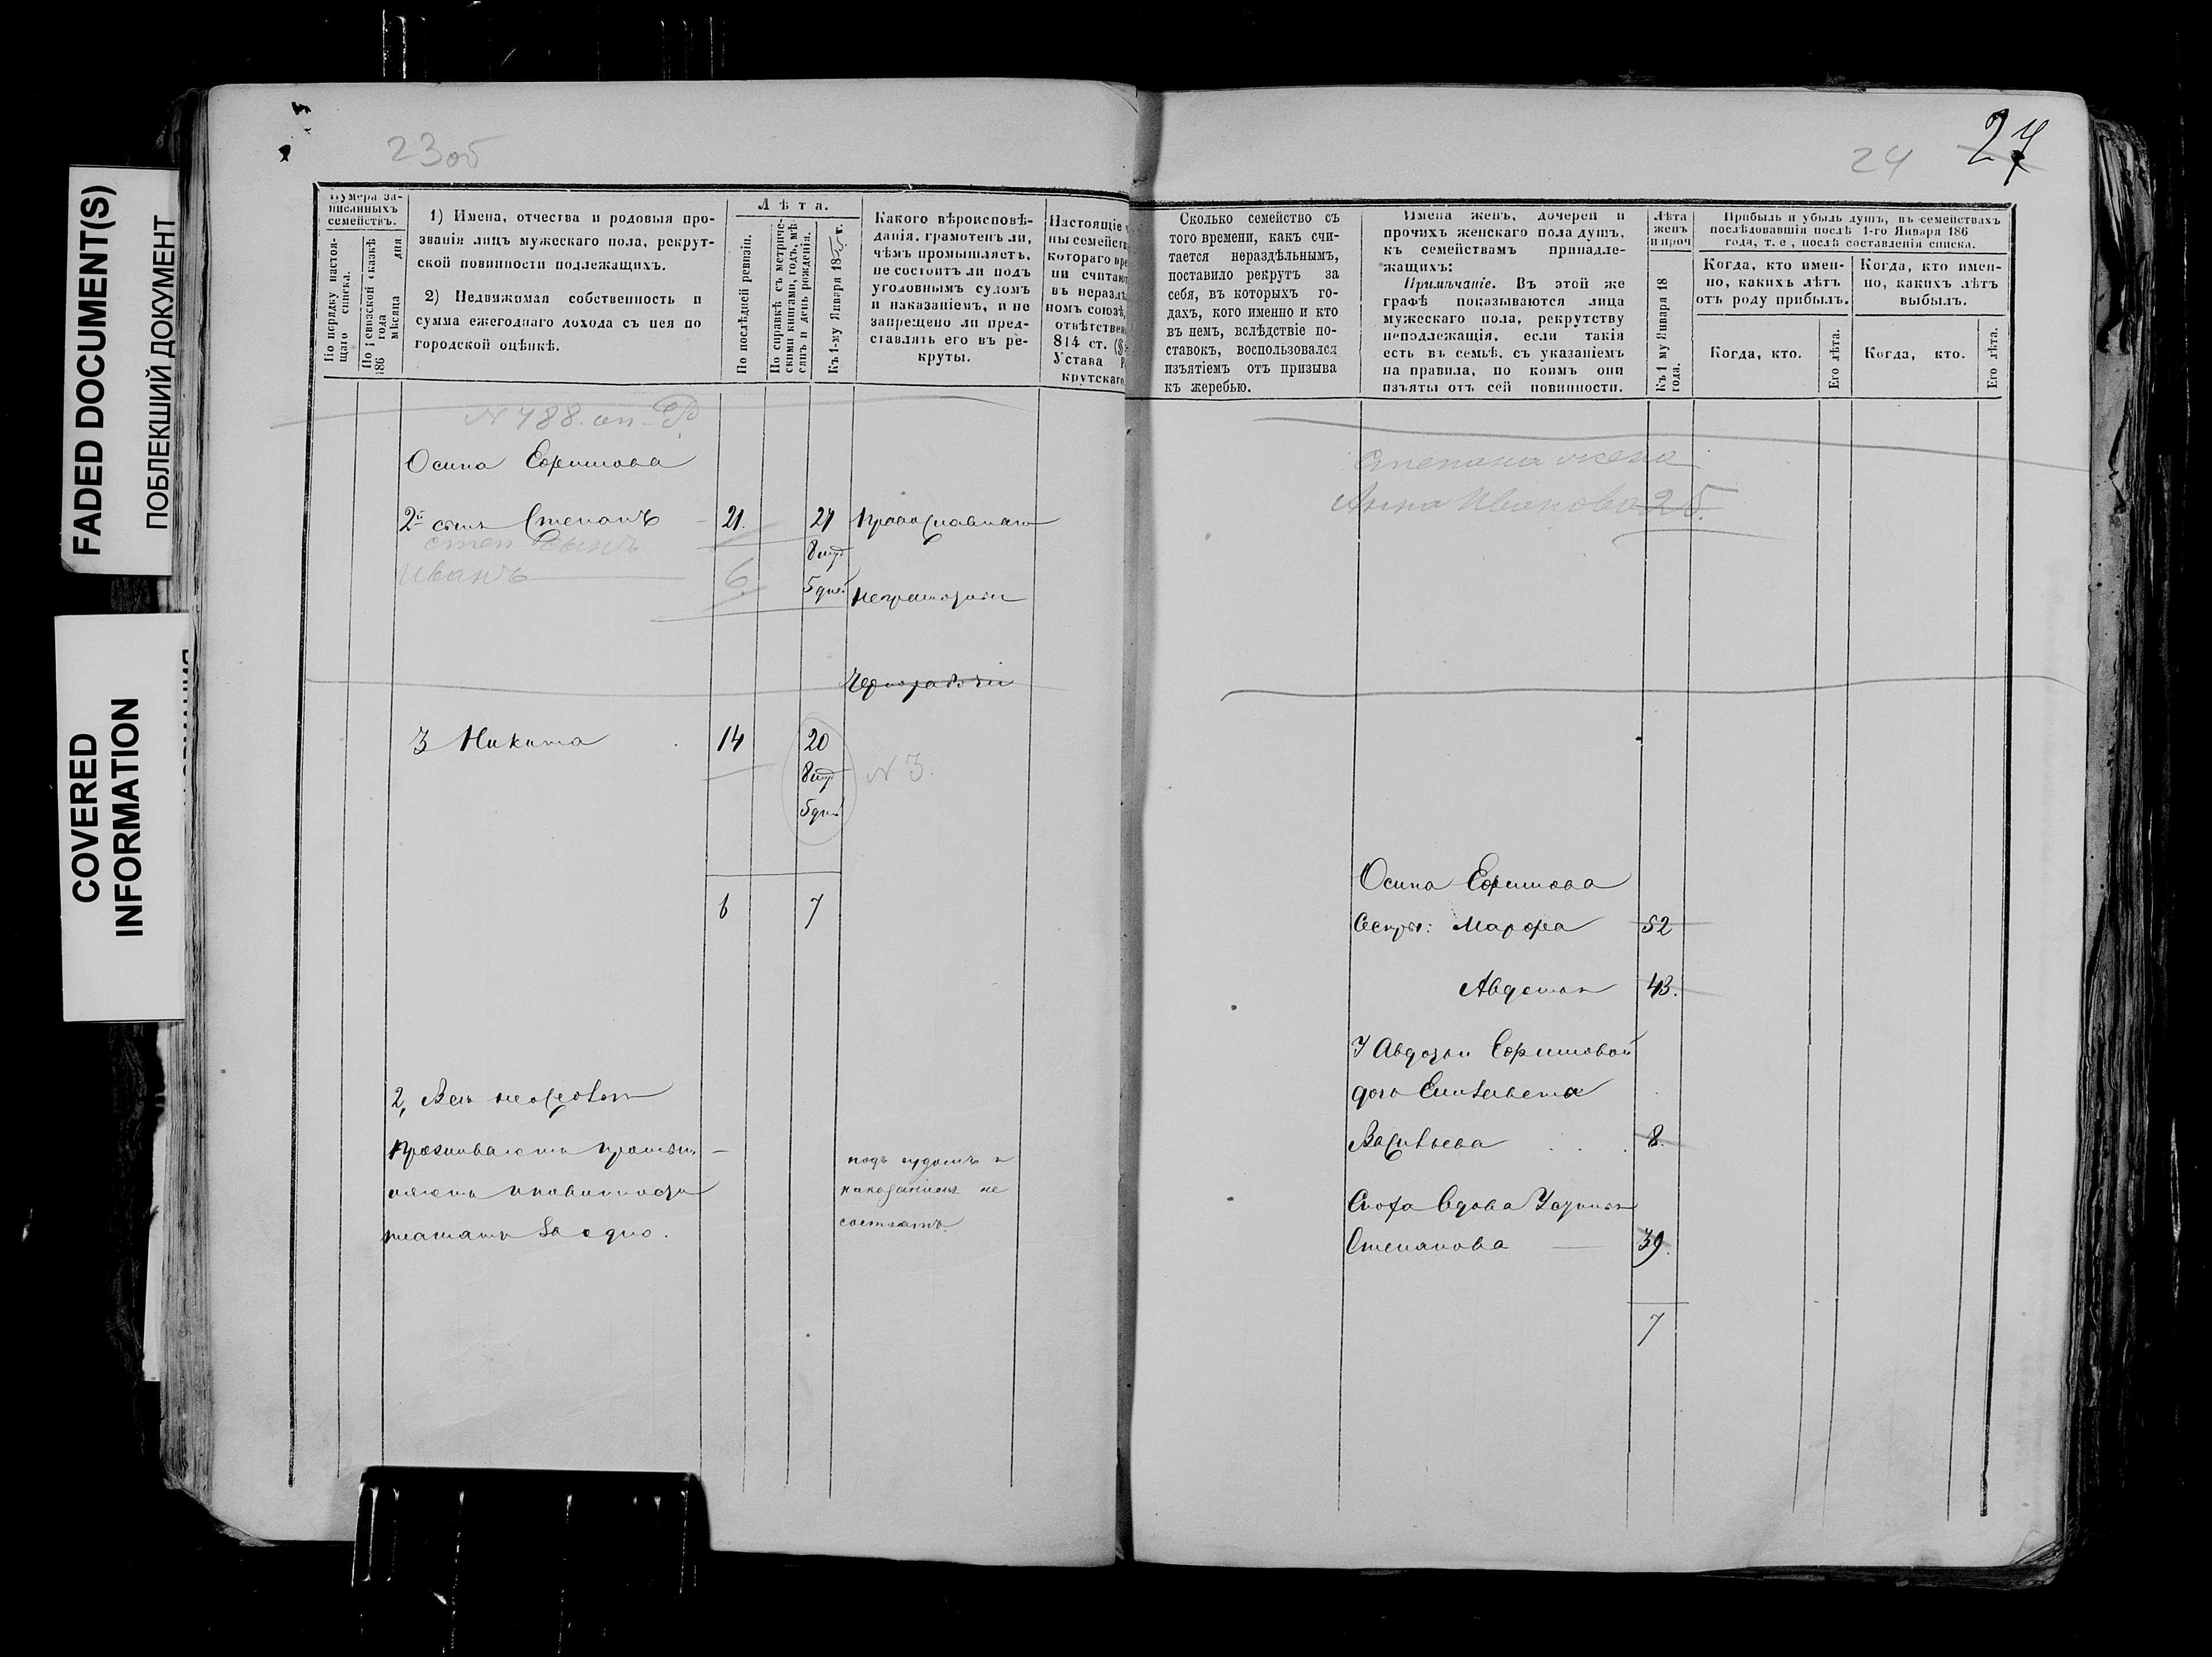 FADED DOCUMENT(S)
ПОБЛЕКШИЙ ДОКУМЕНТ
COVERED
INFORMATION
23об
Нумера за-
писанныхъ
семействъ.
По порядку настоя-
щаго списка.
По ревизской сказкѣ
186 года
мѣсяца дня
1) Имена, отчества и родовыя про-
званія лицъ мужескаго пола, рекрут-
ской повинности подлежащихъ.
2) Недвижимая собственность и
сумма ежегоднаго дохода съ нея по
городской оцѣнкѣ.
Лѣта.
По послѣдней ревизіи.
По справкѣ съ метриче-
скими книгами, годъ, мѣ-
сяцъ и день рожденія.
Къ 1-му Января 18 г.
Какого вѣроисповѣ-
данія, грамотенъ ли,
чѣмъ промышляетъ,
не состоитъ ли подъ
уголовнымъ судомъ
и наказаніемъ, и не
запрещено ли пред-
ставлять его въ ре-
круты.
Настоящіе
ны семейств
котораго вре
ни считаю
въ неразд
номъ союзѣ,
отвѣтствен
814 ст. (§
Устава Р
крутскаго
N 788.
Осипа Ефимова
2й сынъ Степанъ 21. 27 Православнаго
Степ сынъ 8 мѣс
Иванъ 6 5 дней неграмотны
Чернорабочій
3 Никита 14 20
8 мѣс N 3.
5 дней
6 7
2,
проживаютъ
платятъ за едно.
подъ судомъ и
наказаніемъ не
состоятъ.
24 27
Сколько семейство съ
того времени, какъ счи-
тается нераздѣльнымъ,
поставило рекрутъ за
себя, въ которыхъ го-
дахъ, кого именно и кто
въ немъ, вслѣдствіе по-
ставокъ, воспользовался
изъятіемъ отъ призыва
къ жеребью.
Имена женъ, дочерей и
прочихъ женскаго пола душъ,
къ семействамъ принадле-
жащихъ:
Примѣчаніе. Въ этой же
графѣ показываются лица
мужескаго пола, рекрутству
неподлежащія, если такія
есть въ семьѣ, съ указаніемъ
на правила, по коимъ они
изъяты отъ сей повинности.
Лѣта
женъ
и проч
Къ 1 му Января 18
года.
Прибыль и убыль душъ, въ семействахъ
послѣдовавшія послѣ 1-го Января 186
года, т. е, послѣ составленія списка.
Когда, кто имен-
но, какихъ лѣтъ
отъ роду прибылъ.
Когда, кто имен-
но, какихъ лѣтъ
выбылъ.
Когда, кто.
Его лѣта.
Когда, кто.
Его лѣта.
Степана жена
Анна Иванова 25.
Осипа Ефимова
Сестры: Марфа 52
Авдотья 43.
У Авдотьи Ефимовой
дочь Елизавета
Васильева 8.
Сноха вдова Устинья
Степанова 39.
7